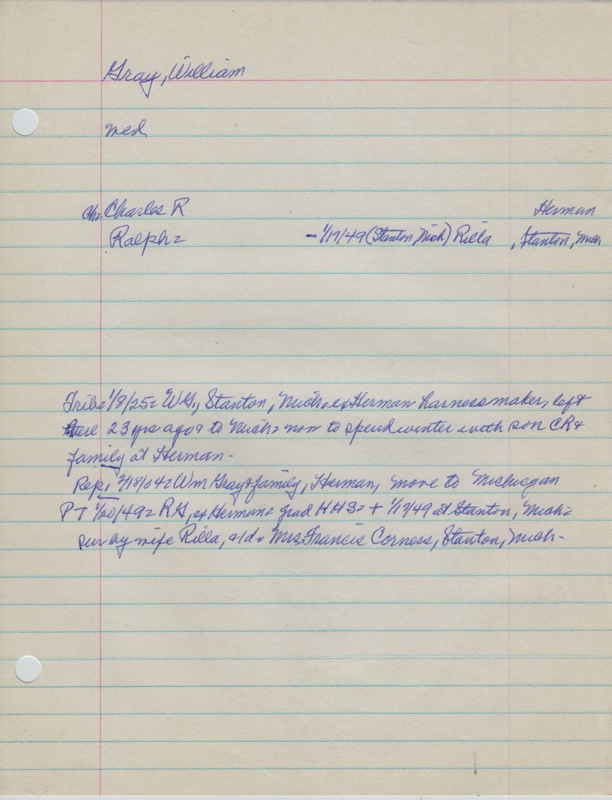 Gray, William
med
Ch: Charles R Herman
Ralph = - 1/17/49 (Stanton, Mich) Rilla , Stanton, Mich
Trib: 1/8/25 = WG, Stanton, Mich = ex Herman harnessmaker, left
here 23 yrs ago & to Mich = now to spend winter with son CR &
family at Herman -
Rep: 2/18/04 = Wm Gray & family, Herman, move to Michigan
PT 1/20/49 = RG, ex Herman = grad HHS = + 1/17/49 at Stanton, Mich =
surv by wife Rilla, a/d = Mrs Francis Corness, Stanton, Mich -